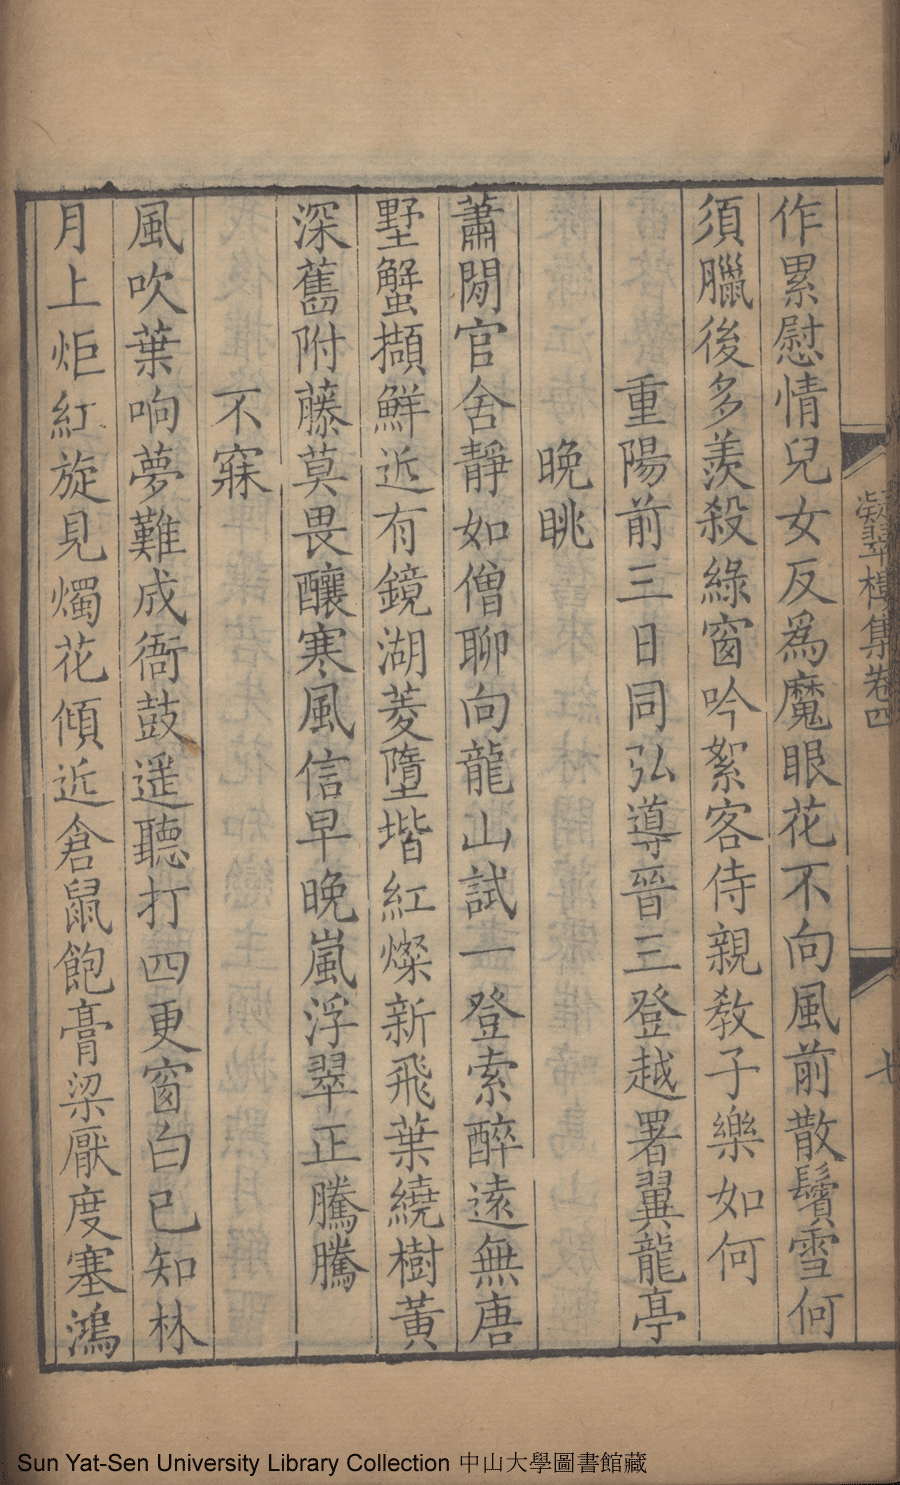 凝翠樓集卷四
七
作累慰情兒女反爲魔眼花不向風前散鬢雪何
須臘後多羨殺綠窗吟絮客侍親敎子樂如何
重陽前三日同弘導晉三登越署翼龍亭
晚眺
蕭閒官舍靜如僧聊向龍山試一登索醉遠無唐
墅蟹擷鮮近有鏡湖菱墮堦紅燦新飛葉繞樹黃
深舊附藤莫畏釀寒風信早晚嵐浮翠正騰騰
不寐
風吹葉响夢難成衙鼓遥聽打四更窗白已知林
月上炬紅旋見燭花傾近倉鼠飽膏粱厭度塞鴻
Sun Yat-Sen University Library Collection 中山大學圖書館藏